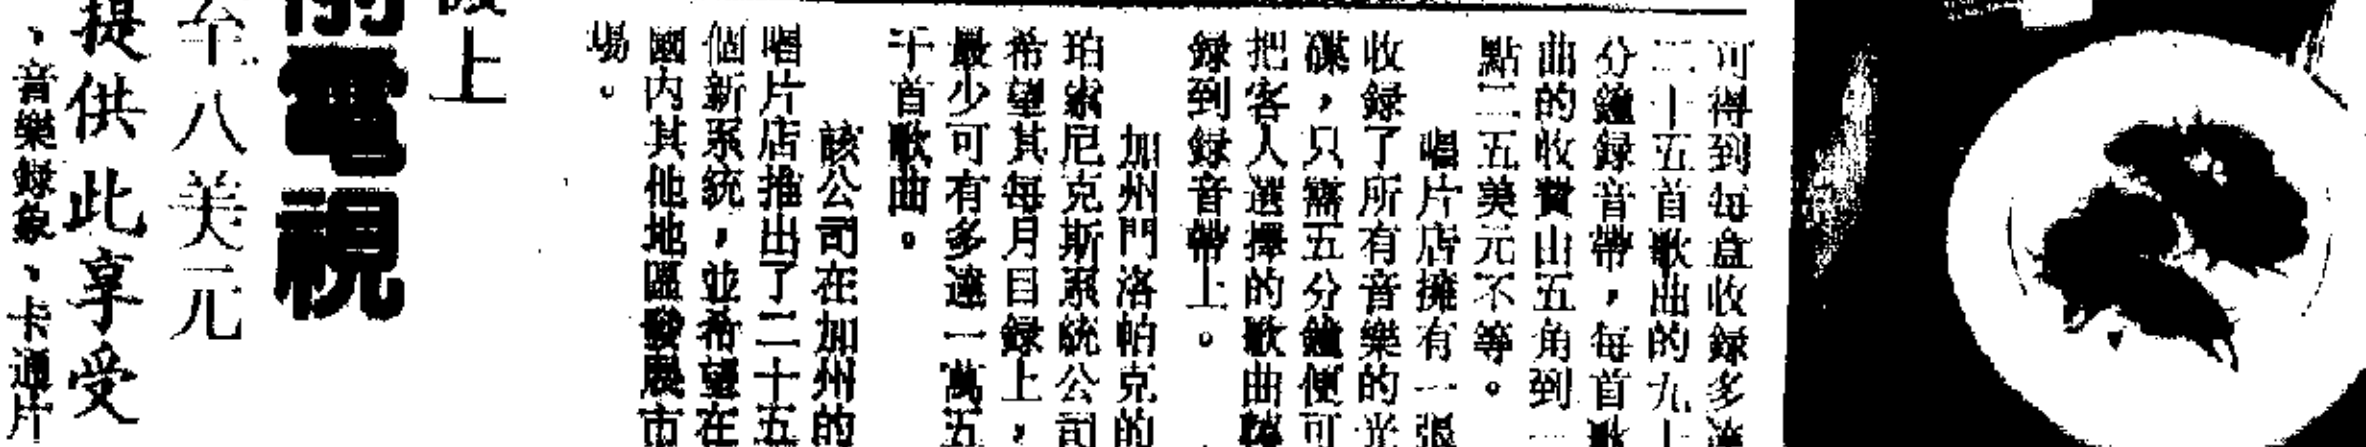 可得到每盒收録多達
二十五首歌曲的九十
分鐘録音帶，每首歌
曲的收費由五角到一
點二五美元不等。
唱片店擁有一張
收録了所有音樂的光
碟，只需五分鐘便可
把客人選擇的歌曲轉
録到録音帶上。
加州門洛帕克的
珀索尼克斯系統公司
希望其每月目録上，
最少可有多達一萬五
千首歌曲。
該公司在加州的
唱片店推出了二十五
個新系統，並希望在
國内其他地區發展市
場。
上
電視
至十八美元
提供此享受
、音樂録象、卡通片